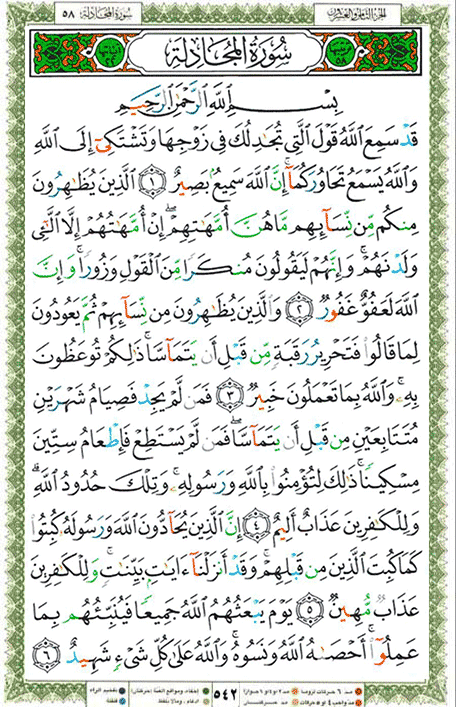 سُورَةُ المُجَادلَة ٥٨ الجُزءُ الثَّامِنُ وَالعِشرُونَ
سُورَةُ المُجَادلَةِ
بِسْمِ ٱللَّهِ ٱلرَّحْمَٰنِ ٱلرَّحِيمِ
قَدْ سَمِعَ ٱللَّهُ قَوْلَ ٱلَّتِى تُجَٰدِلُكَ فِى زَوْجِهَا وَتَشْتَكِىٓ إِلَى ٱللَّهِ
وَٱللَّهُ يَسْمَعُ تَحَاوُرَكُمَآ ۚ إِنَّ ٱللَّهَ سَمِيعٌۢ بَصِيرٌ ١ ٱلَّذِينَ يُظَٰهِرُونَ
مِنكُم مِّن نِّسَآئِهِم مَّا هُنَّ أُمَّهَٰتِهِمْ ۖ إِنْ أُمَّهَٰتُهُمْ إِلَّا ٱلَّٰٓـِٔى
وَلَدْنَهُمْ ۚ وَإِنَّهُمْ لَيَقُولُونَ مُنكَرًا مِّنَ ٱلْقَوْلِ وَزُورًا ۚ وَإِنَّ
ٱللَّهَ لَعَفُوٌّ غَفُورٌ ٢ وَٱلَّذِينَ يُظَٰهِرُونَ مِن نِّسَآئِهِمْ ثُمَّ يَعُودُونَ
لِمَا قَالُوا۟ فَتَحْرِيرُ رَقَبَةٍ مِّن قَبْلِ أَن يَتَمَآسَّا ۚ ذَٰلِكُمْ تُوعَظُونَ
بِهِۦ ۚ وَٱللَّهُ بِمَا تَعْمَلُونَ خَبِيرٌ ٣ فَمَن لَّمْ يَجِدْ فَصِيَامُ شَهْرَيْنِ
مُتَتَابِعَيْنِ مِن قَبْلِ أَن يَتَمَآسَّا ۖ فَمَن لَّمْ يَسْتَطِعْ فَإِطْعَامُ سِتِّينَ
مِسْكِينًا ۚ ذَٰلِكَ لِتُؤْمِنُوا۟ بِٱللَّهِ وَرَسُولِهِۦ ۚ وَتِلْكَ حُدُودُ ٱللَّهِ ۗ
وَلِلْكَٰفِرِينَ عَذَابٌ أَلِيمٌ ٤ إِنَّ ٱلَّذِينَ يُحَآدُّونَ ٱللَّهَ وَرَسُولَهُۥ كُبِتُوا۟
كَمَا كُبِتَ ٱلَّذِينَ مِن قَبْلِهِمْ ۚ وَقَدْ أَنزَلْنَآ ءَايَٰتٍۭ بَيِّنَٰتٍ ۚ وَلِلْكَٰفِرِينَ
عَذَابٌ مُّهِينٌ ٥ يَوْمَ يَبْعَثُهُمُ ٱللَّهُ جَمِيعًا فَيُنَبِّئُهُم بِمَا
عَمِلُوٓا۟ ۚ أَحْصَىٰهُ ٱللَّهُ وَنَسُوهُ ۚ وَٱللَّهُ عَلَىٰ كُلِّ شَىْءٍ شَهِيدٌ ٦
٥٤٢